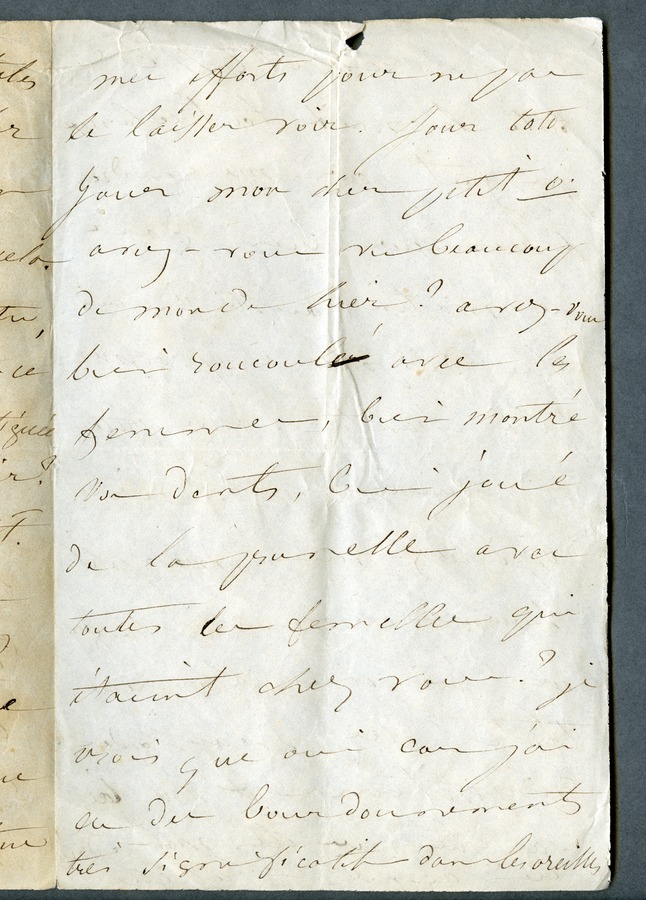 mes efforts pour ne pas
le laisser voir. Jour toto.
Jour mon cher petit o.
avez-vous vu beaucoup
de monde hier? avez-vous
bien roucoulé avec les
femmes, bien montré
vos dents, bien joué
de la prunelle avec
toutes les femelles qui
étaient chez vous? je
crois que oui car j'ai
eu des bourdonnements
très significatifs dans les oreilles